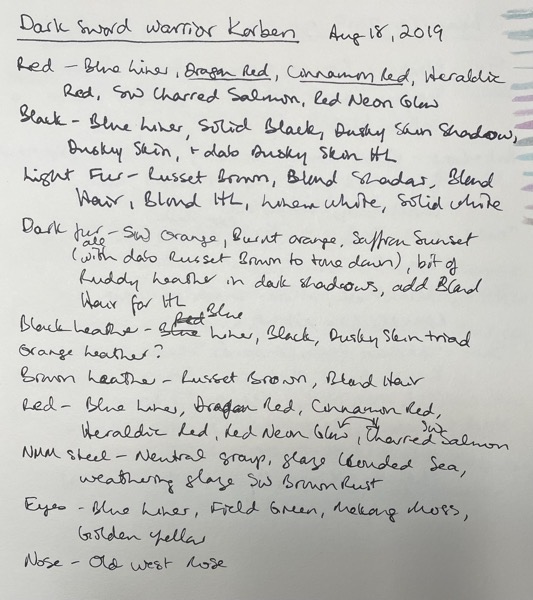 Dark Sword Warrior Korben Aug 18, 2019
Red - Blue Liner, Dragon Red, Cinnamon Red, Heraldic
Red, SW Charred Salmon, Red Neon Glow
Black - Blue Liner, Solid Black, Dusky Skin Shadow,
Dusky Skin, + dab Dusky Skin HL
Light Fur - Russet Brown, Blond Shadow, Blond
Hair, Blond HL, Linen White, Solid White
Dark fur - SW Orange, Burnt Orange, Saffron Sunset
(all with dab Russet Brown to tone down), bit of
Ruddy Leather in dark shadows, add Blond
Hair for HL
Black leather - Blue Liner, Black, Dusky Skin triad
Orange leather?
Brown leather - Russet Brown, Blond Hair
Red - Blue Liner, Dragon Red, Cinnamon Red,
Heraldic Red, Red Neon Glow, SW Charred Salmon
NMM Steel - Neutral group, glaze Clouded Sea,
weathering glaze SW Brown Rust
Eyes - Blue Liner, Field Green, Mekong Moss,
Golden Yellow
Nose - Old West Rose